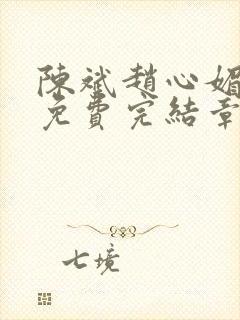 陳斌趙心媚
免費完結章
七境